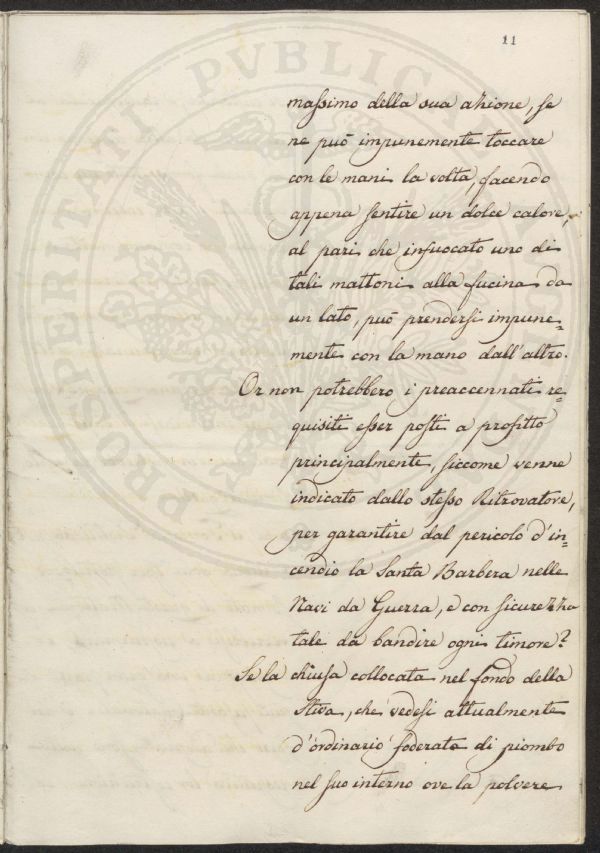 11
massimo della sua azione, se
ne può impunemente toccare
con le mani la volta, facendo
appena sentire un dolce calore,
al pari che infuocato uno di
tali mattoni alla fucina da
un lato, può prendersi impune=
mente con la mano dall'altro.
Or non potrebbero i preaccennati re=
quisiti esser posti a profitto
principalmente, siccome venne
indicato dallo stesso Ritrovatore,
per garantire dal pericolo d'in=
cendio la Santa Barbera nelle
Navi da Guerra, e con sicurezza
tale da bandire ogni timore?
Se la chiusa collocata nel fondo della
stiva, che vedesi attualmente
d'ordinario foderata di piombo
nel suo interno ove la polvere
PROSPERITATI PVBLICAE